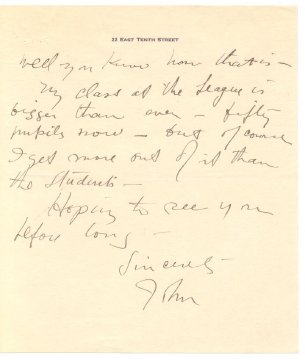 22 EAST TENTH STREET
well you know how that is –
My class at the League is
bigger than ever – fifty
pupils now – but of course
I get more out of it than
the students –
Hoping to see you
before long –
Sincerely
John